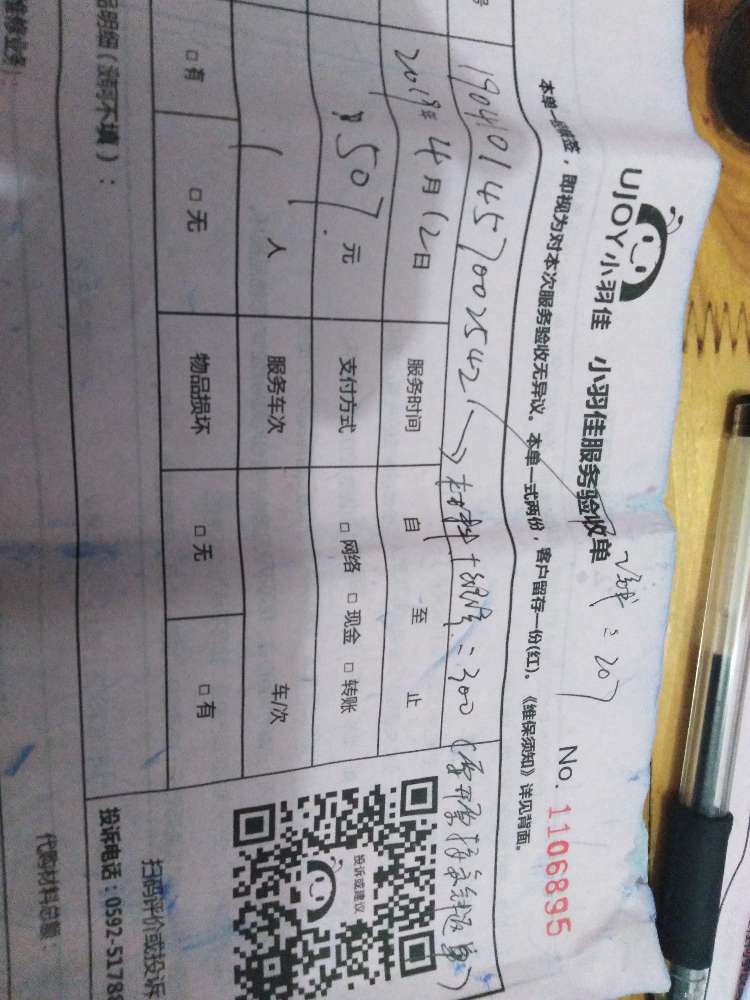 UJOY小羽佳 小羽佳服务验收单
No. 1106895
本单一经签，即视为对本次服务验收无异议。本单一式两份，客户留存一份(红)。《维保须知》详见背面。
=207
号 1904014570025421
材料 =300
2019年4月12日 服务时间 自 至 止
507元 支付方式 □网络 □现金 □转账
人 服务车次 车/次
□有 □无 物品损坏 □无 □有
投诉或建议
品明细（涮不填）：
扫码评价或投诉
投诉电话：0592-5178
代购材料总额：